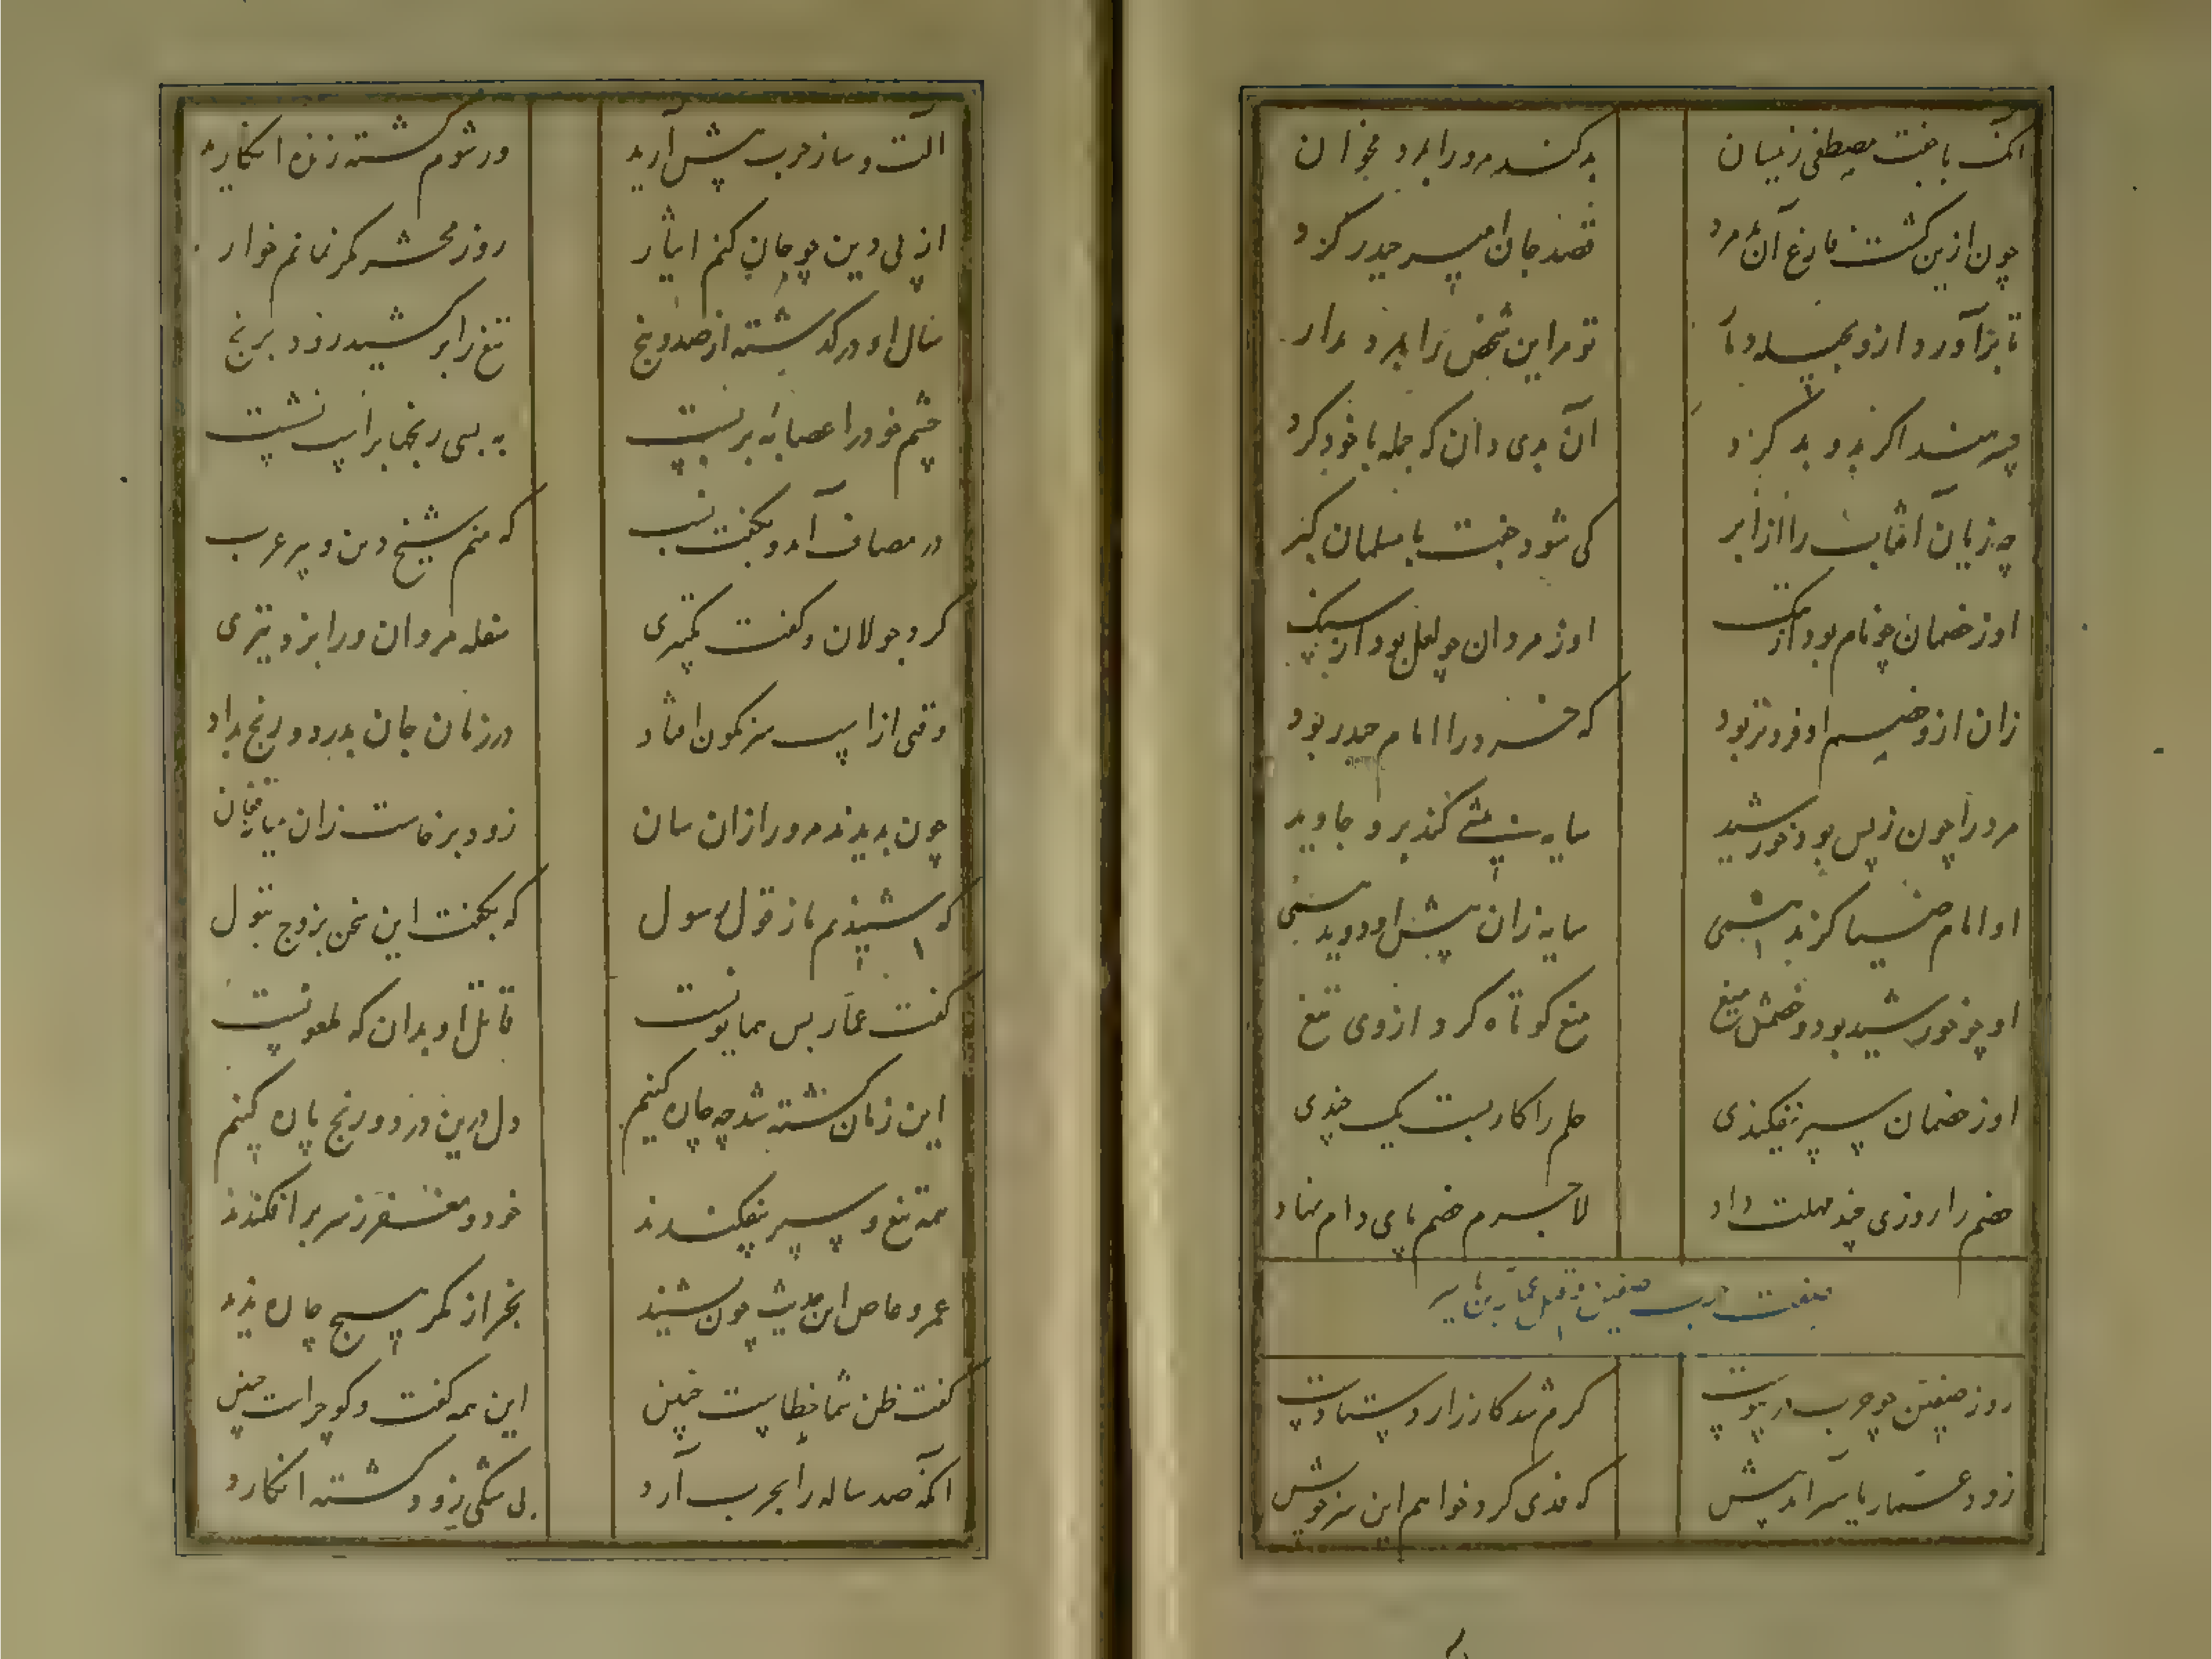 آنکه با جفت مصطفی زینسان بد کند مرو را بمرد مخوان
چون ازین کشت فارغ آن مرد قصد جان امیر حیدر کرد
تا برآورد ازو بحیله دمار تو مر این شخص را بمرد مدار
چه شد اکر بدو بد کرد آن بدی دان که جمله با خود کرد
چه زیان آفتاب را از ابر کی شود جفت با مسلمان کبر
او ز خصمان چو نام بود از ننک او ز مردان چو لعل بود از سنک
زان ازو خصم او فروتر بود که خرد را امام حیدر بود
مرد را چون ز پس بود خورشید سایه پیشی کند برو جاوید
سایه زان پیش او دوید
او چو خورشید بود و خصمش میغ میغ کوتاه کرد ازوی تیغ
او ز خصمان سپر نیفکندی حلم را کار بست یک چندی
خصم را روزی چند مهلت داد لاجرم خصم پای دام نهاد
صفت حرب صفین و قتل عمار بن یاسر
روز صفین چو حرب درپیوست کرم شد کارزار و
زود عمار یاسر آمد پیش که فدی کرد خواهم این سر خویش
آلت و ساز حرب پیش آرید ور شوم کشته زنده انکارید
از پی دین چو جان کنم ایثار روز محشر مکر نمانم خوار
سال او در کذشته از صد و پنج تیغ را بر کشید زود برنج
چشم خود را عصابه بر بست به بسی رنجها بر اسپ نشست
در مصاف آمد و بکفت نسب که منم شیخ دین و پیر عرب
کرد جولان و کفت تکبیری سفله مروان ورا بزد تیری
وقتی از اسپ سرنکون افتاد در زمان جان بدرد و رنج بداد
چون بدیدند مرورا زان سان زود برخاست زان میانه فغان
که شنیدیم ما ز قول رسول که بکفت این سخن بزوج بتول
کفت عمار بس همایونست قاتل او بدان که ملعونست
این زمان کشته شد چه چاره کنیم دل درین درد و رنج پاره کنیم
همه تیغ و سپر بیفکندند خود و مغفر ز سر برافکندند
عمرو عاص این حدیث چون شنید بجز از مکر هیچ چاره ندید
کفت ظن شما خطاست چنین این همه کفت و کو چراست چنین
آنکه صد ساله را بحرب آرد بی شکی زود کشته انکارد